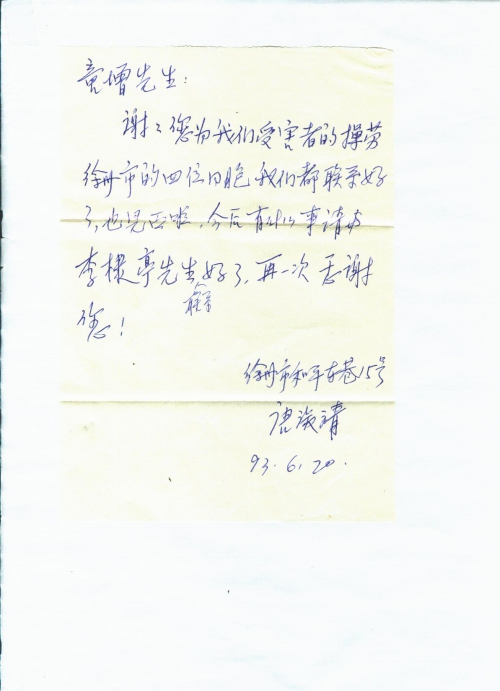 童增先生：
谢々您为我们受害者的操劳
徐州市的四位同胞我们都联系好
了,也见面啦,今后有什么事请与
李棣亭先生联系好了,再一次感谢
您!
徐州市和平东巷15号
唐淑清
93.6.20.